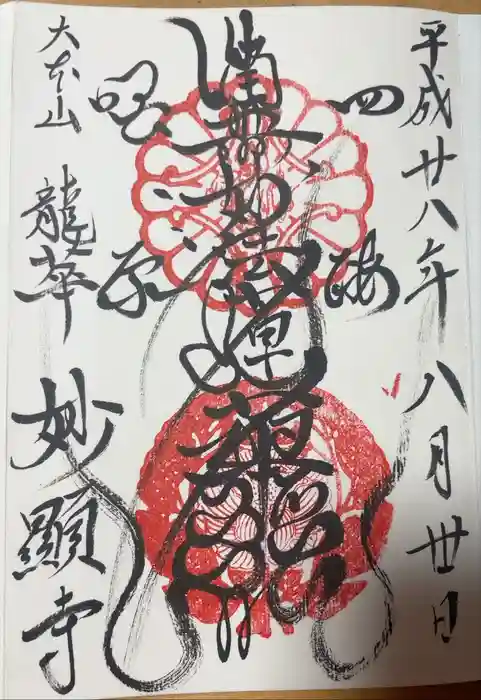 平成廿八年八月丗日
四海
南無妙法蓮華經
唱導
大本山 龍華 妙顯寺